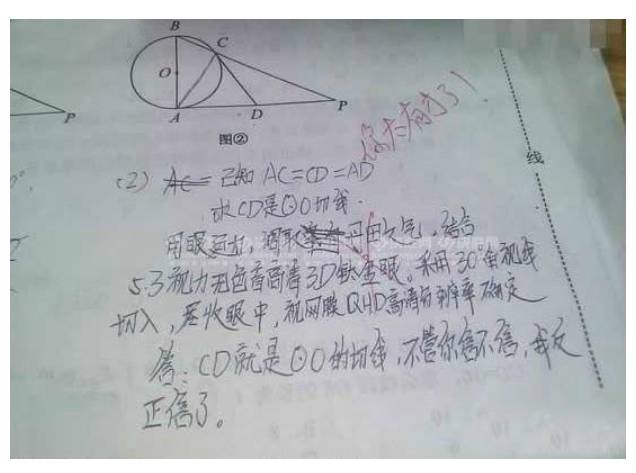 B
C
O
A
D
P
P
图②
你太有才了!
线
(2) AC= 已知 AC=CD=AD
求CD是⊙O切线.
用眼运力,调取丹田之气,结合
5.3视力无色盲高清3D钛金眼.采用30°角视线
切入,尽收眼中,视网膜QHD高清分辨率确定
答:CD就是⊙O的切线,不管你信不信,我反
正信了。